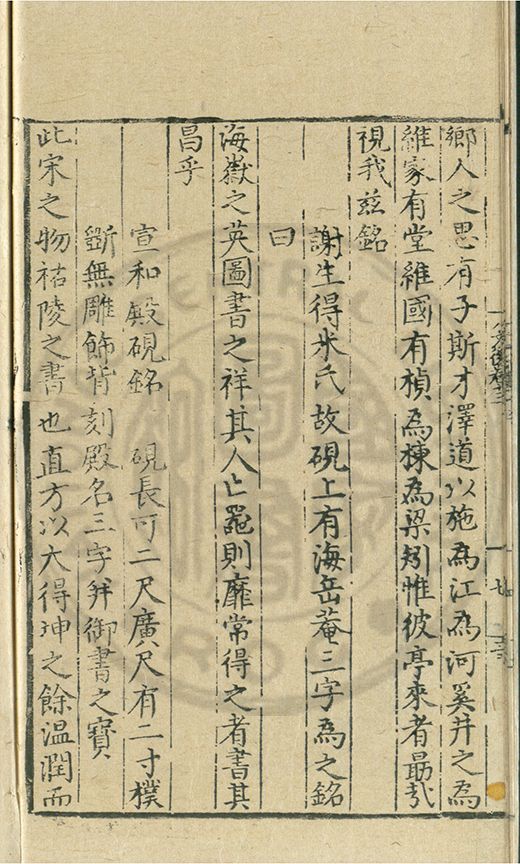 鄉人之思有子斯才澤道以施為江為河奚井之為
維家有堂維國有楨為棟為梁矧惟彼亭來者勗哉
視我茲銘
謝生得米氏故硯上有海岳菴三字為之銘
曰
海嶽之英圖書之祥其人亡罷則靡常得之者書其
昌乎
宣和殿硯銘 硯長可二尺廣尺有二寸樸
斲無雕飾背刻殿名三字并御書之寶
此宋之物祐陵之書也直方以大得坤之餘溫潤而